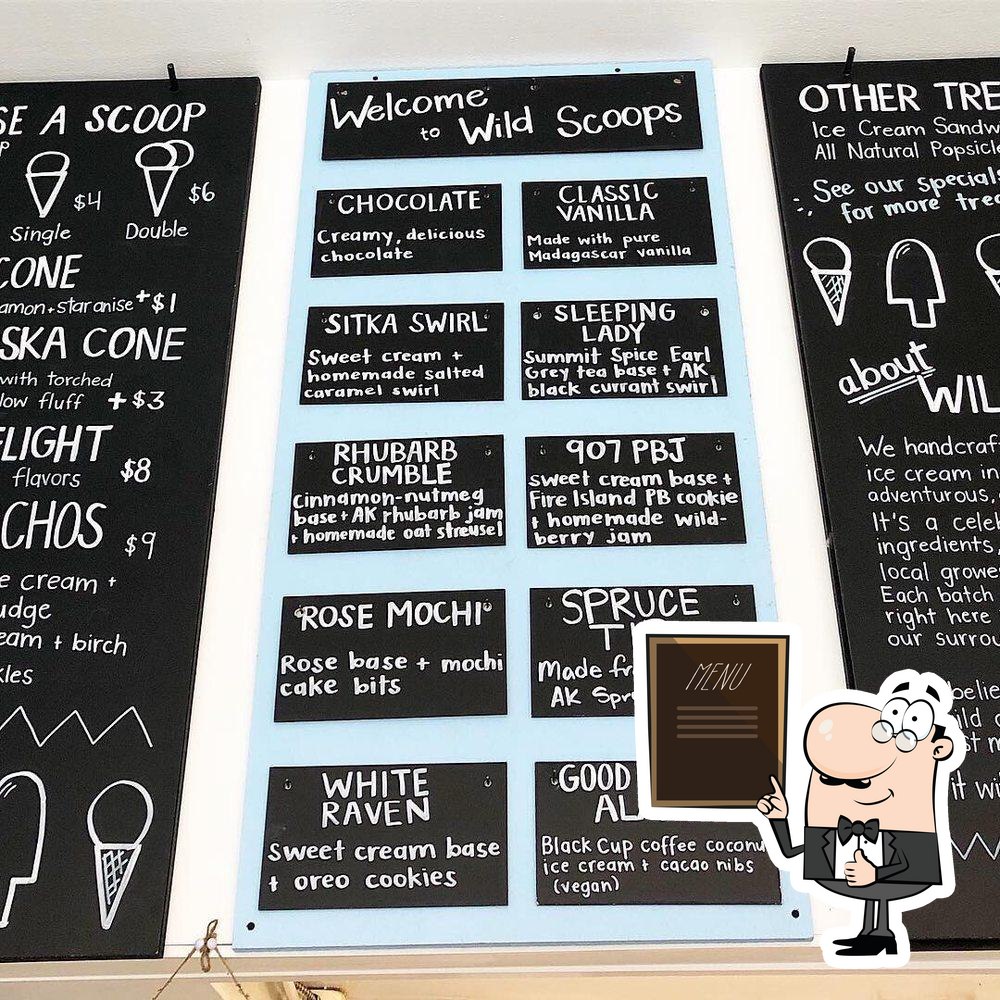 SE A SCOOP
Single
$4
Double
$6
CONE
amon + star anise + $1
SKA CONE
with torched
low fluff + $3
LIGHT
flavors $8
CHOS $9
e cream +
udge
eam + birch
kles
Welcome
to Wild Scoops
CHOCOLATE
Creamy, delicious
chocolate
CLASSIC
VANILLA
Made with pure
Madagascar vanilla
SITKA SWIRL
Sweet cream +
homemade salted
caramel swirl
SLEEPING
LADY
Summit Spice Earl
Grey tea base + AK
black currant swirl
RHUBARB
CRUMBLE
cinnamon-nutmeg
base + AK rhubarb jam
+ homemade oat streusel
907 PBJ
sweet cream base +
Fire Island PB cookie
+ homemade wild-
berry jam
ROSE MOCHI
Rose base + mochi
cake bits
SPRUCE
T
Made fr
AK Spr
WHITE
RAVEN
Sweet cream base
+ oreo cookies
GOOD
AL
Black Cup coffee coconu
ice cream + cacao nibs
(vegan)
MENU
OTHER TRE
Ice Cream Sandw
All Natural Popsicle
See our specials
for more trea
about
WIL
We handcraf
ice cream in
adventurous,
It's a cele
ingredients,
local growe
Each batch
right here
our surrou
belie
ild
st m
it wi